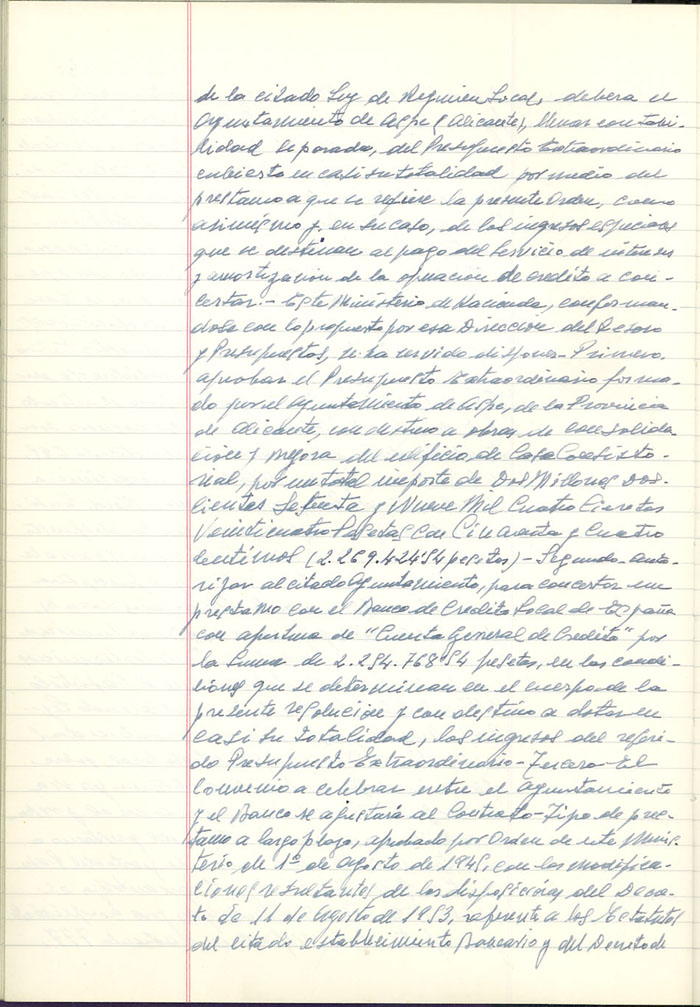 de la citada Ley de Regimen Local, debera el
Ayuntamiento de Aspe (Alicante), llevar contabi-
lidad separada, del Presupuesto Extraordinario
cubierto en casi su totalidad por medio del
prestamo a que se refiere la presente Orden, como
asimismo y, en su caso, de los ingresos especiales
que se destinan al pago del servicio de intereses
y amortizacion de la operacion de credito a con-
certar.- Este Ministerio de Hacienda, conforman-
dose con lo propuesto por esa Direccion del Tesoro
y Presupuestos, se ha servido disponer- Primero.
aprobar el Presupuesto Extraordinario forma-
do por el Ayuntamiento de Aspe, de la Provincia
de Alicante, con destino a obras de consolida-
cion y mejora del edificio de Casa Consisto-
rial, por un total importe de Dos Millones Dos-
cientas Sesenta y Nueve Mil Cuatro Cientas
Veinticuatro Pesetas con Cincuenta y Cuatro
centimos (2.269.424'54 pesetas) - Segundo- auto-
rizar al citado Ayuntamiento, para concertar un
prestamo con el Banco de Credito Local de España
con apertura de "Cuenta General de Credito" por
la suma de 2.254.768'54 pesetas, en las condi-
ciones que se determinan en el cuerpo de la
presente resolucion y con destino a dotar en
casi su totalidad, los ingresos del referi-
do Presupuesto Extraordinario - Tercero - El
Convenio a celebrar entre el Ayuntamiento
y el Banco se ajustará al Contrato-Tipo de pres-
tamo a largo plazo, aprobado por Orden de este Minis-
terio de 1º de Agosto de 1945, con las modifica-
ciones resultantes de las disposiciones del Decre-
to de 11 de agosto de 1953, referente a los Estatutos
del citado establecimiento Bancario y del Decreto de